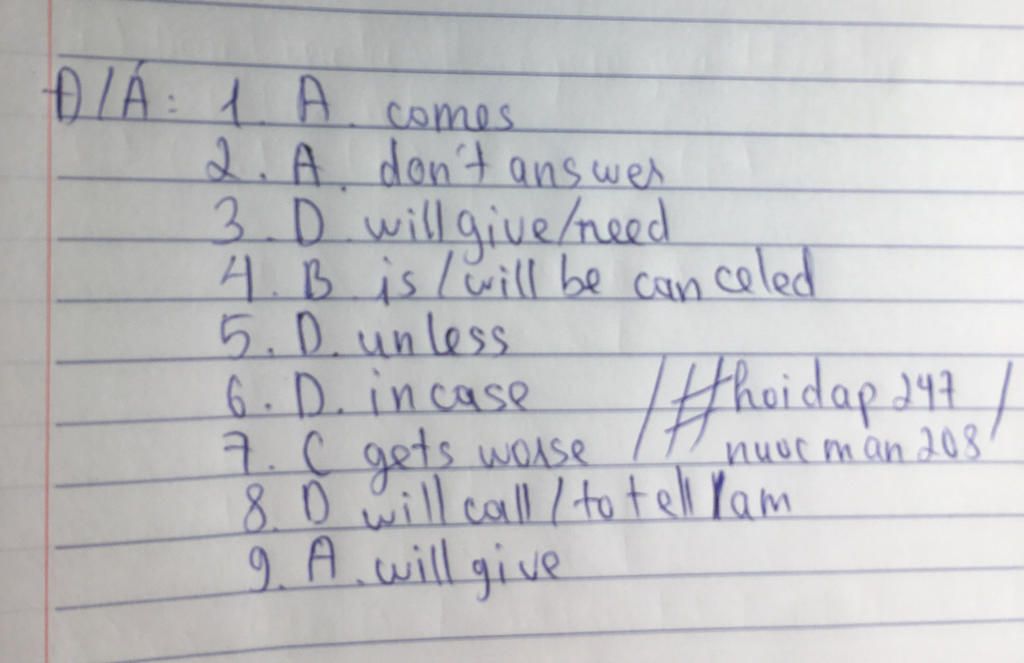 Đ/Á: 1. A. comes
2. A. don't answer
3. D. will give/need
4. B is / will be canceled
5. D. unless
6. D. in case //#hoidap247
7. C gets worse nuocman208/
8. D will call / to tell / am
9. A. will give